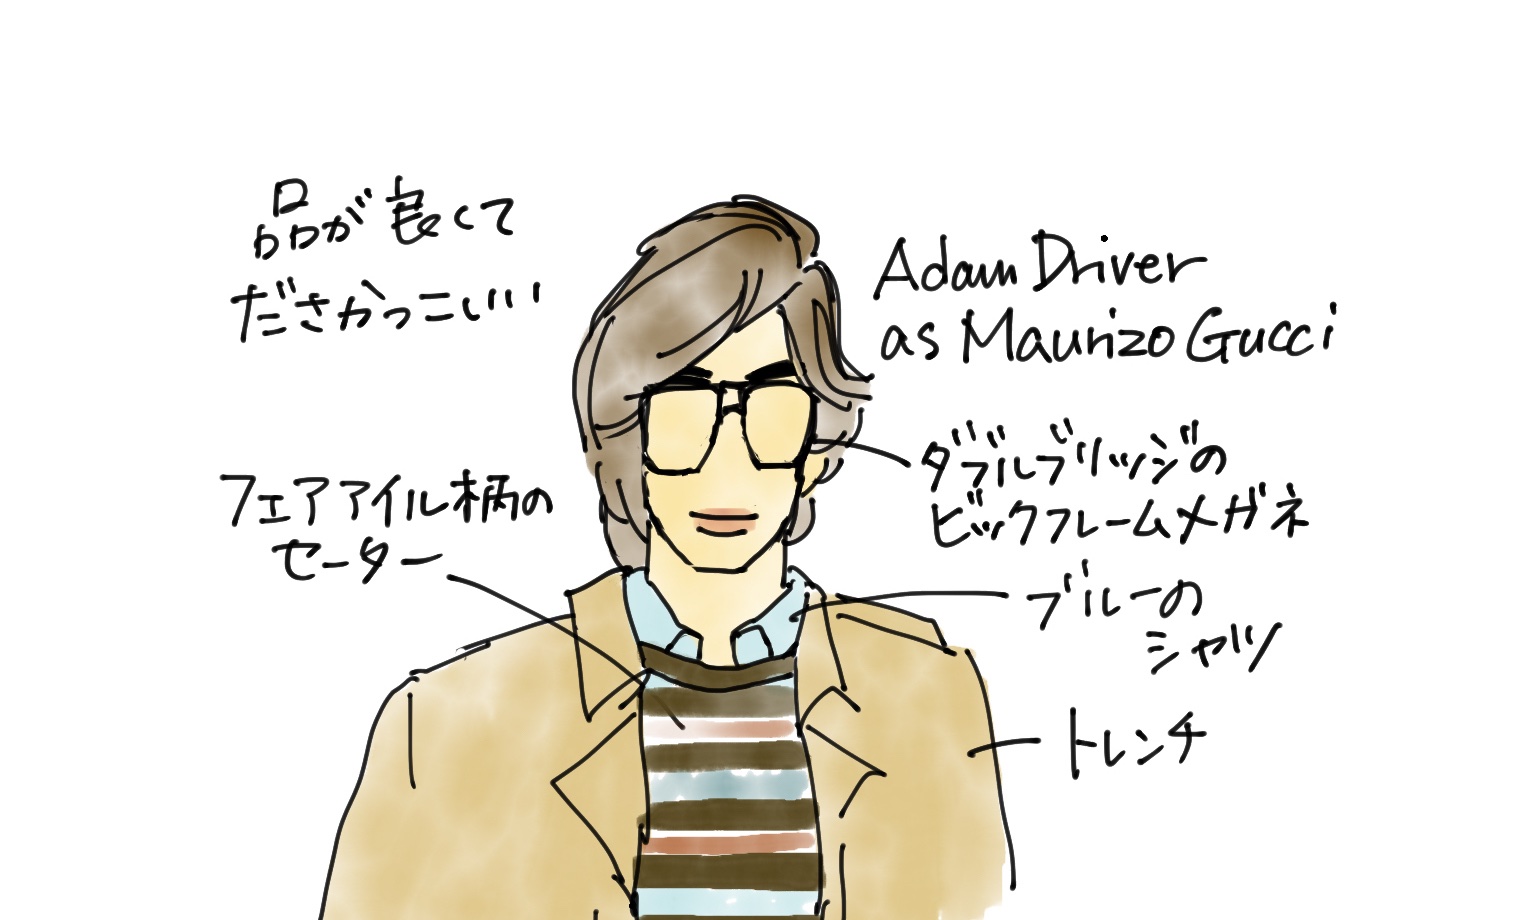 品が良くて
ださかっこいい
Adam Driver
as Maurizo Gucci
フェアアイル柄の
セーター
ダブルブリッジの
ビックフレームメガネ
ブルーの
シャツ
トレンチ